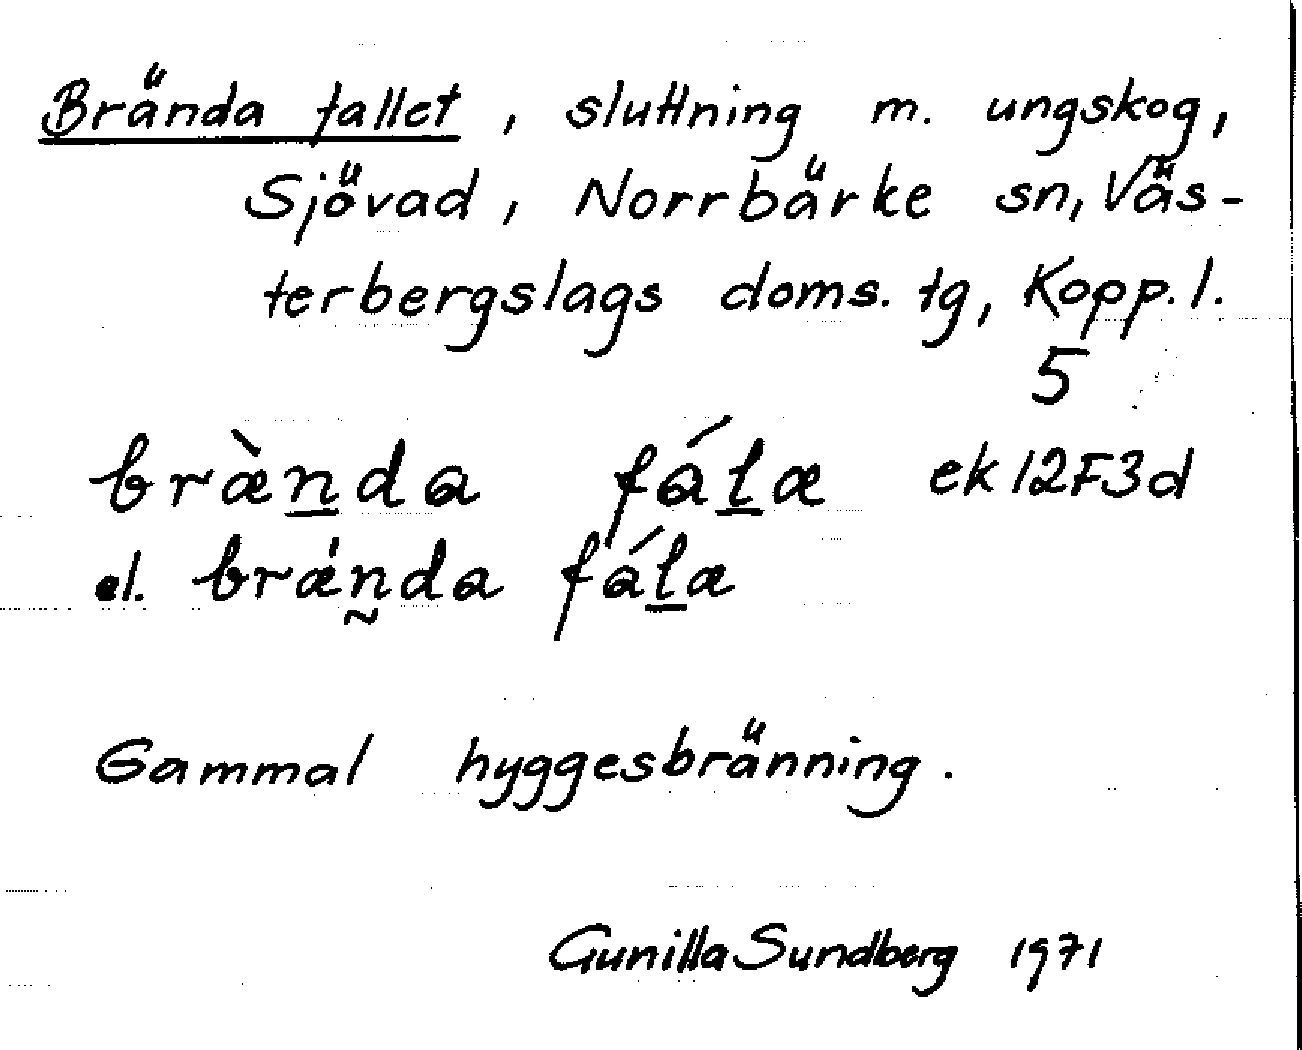 Brända fallet, sluttning m. ungskog,
Sjövad, Norrbärke sn, Väs-
terbergslags doms. tg, Kopp. l.
5
bræ̀n̲da fál̲æ ek 12F3d
el. brǽn̰da fál̲æ
Gammal hyggesbränning.
Gunilla Sundberg 1971